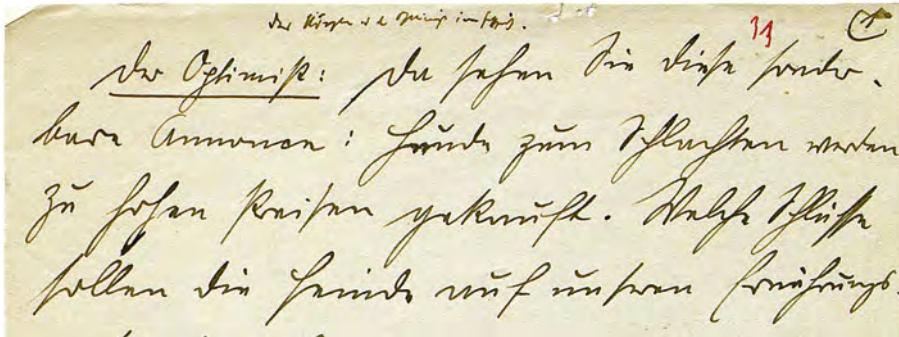 31 1
Der Optimist: Da sehen Sie diese sonder-
bare Annonce: Hunde zum Schlachten werden
zu hohen Preisen gekauft. Welche Schlüsse
sollen die Feinde auf unseren Ernährungs-